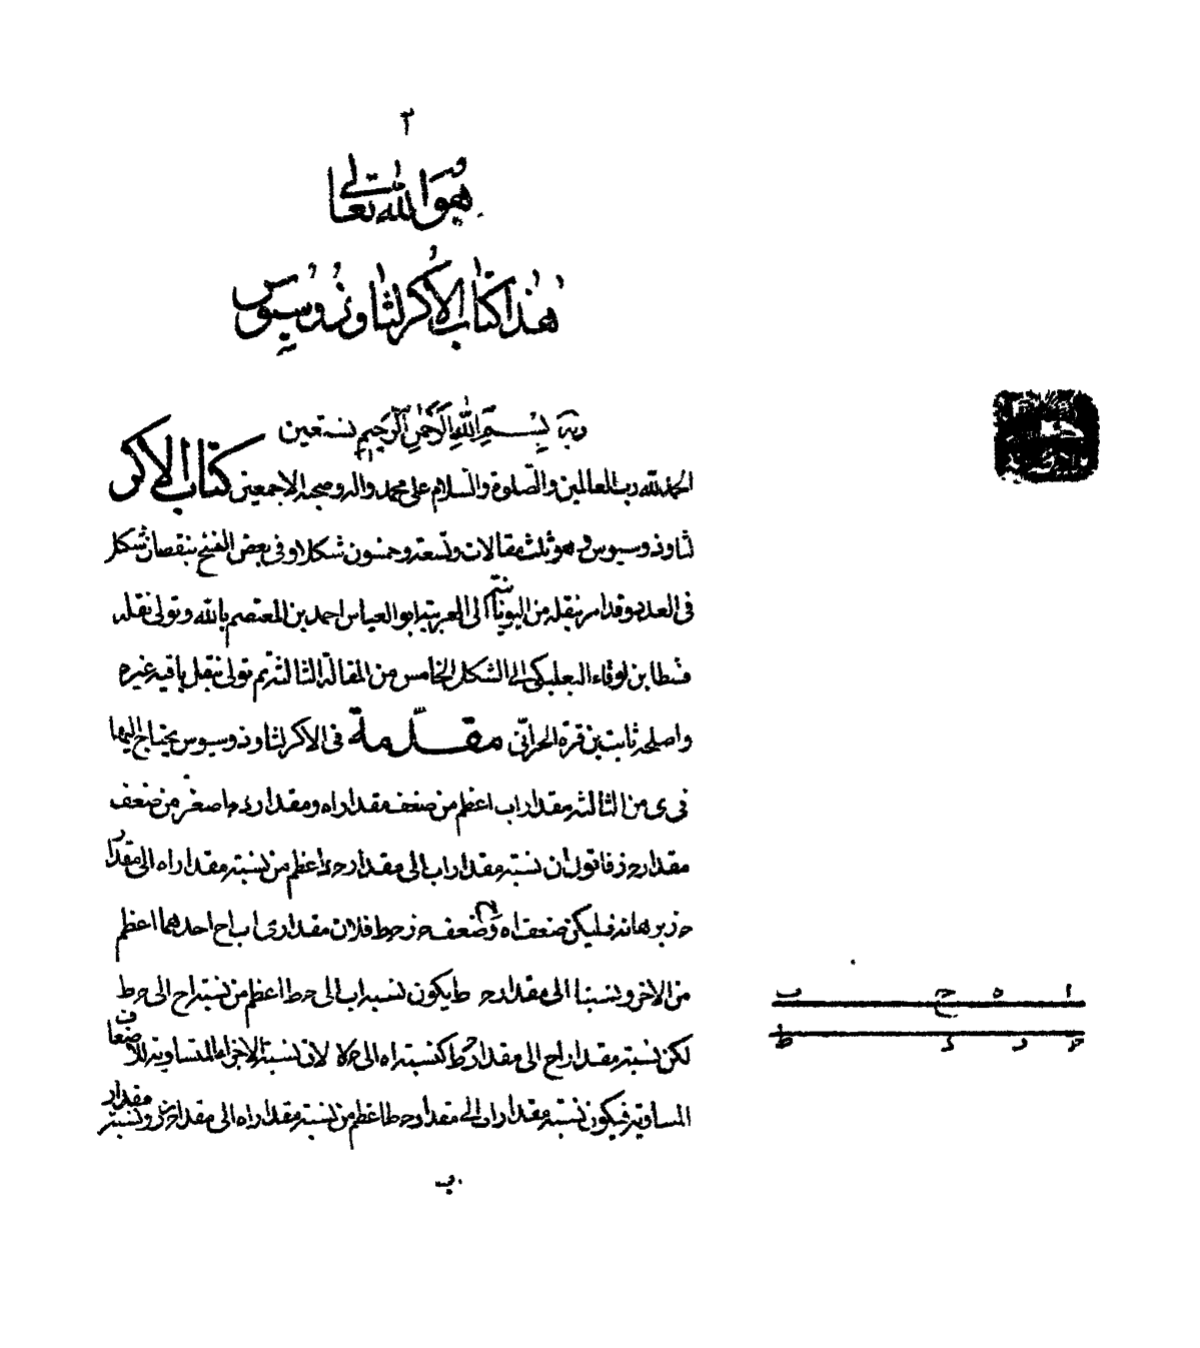 ٢
هو الله تعالى
هذا كتاب الاكر لثاوذوسيوس
بسم الله الرحمن الرحيم وبه نستعين
الحمد لله رب العالمين والصلوة والسلام على محمد واله وصحبه الاجمعين كتاب الاكر
لثاوذوسيوس وهو ثلث مقالات وتسعة وخمسون شكلا وفى بعض النسخ بنقصان شكل
فى العدد وقد امر بنقله من اليونانية الى العربية ابو العباس احمد بن المعتصم بالله وتولى نقله
قسطا بن لوقاء البعلبكى الى الشكل الخامس من المقالة الثالثة ثم تولى نقل باقيه غيره
واصلحه ثابت بن قرة الحرانى مقدمة فى الاكر لثاوذوسيوس يحتاج اليها
فى ى من الثالثة مقدار اب اعظم من ضعف مقدار اه ومقدار اصغر من ضعف
مقدار حز فاقول ان نسبة مقدار اب الى مقدار حد اعظم من نسبة مقدار اه الى مقدار
حز برهانه فليكن ضعف اه اح وضعف حز حط فلان مقدارى اب اح احدهما اعظم
من الاخر ونسبتا الى مقدار حط يكون نسبة اب الى حط اعظم من نسبة اح الى حط
لكن نسبة مقدار اح الى مقدار حط كنسبة اه الى حز لان نسبة الاجزاء المتساوية للاضعاف
المساوية فيكون نسبة مقدار اب الى مقدار حط اعظم من نسبة مقدار اه الى مقدار حز ونسبة مقدار
ب
ا ه ح ب
ح ز د ط